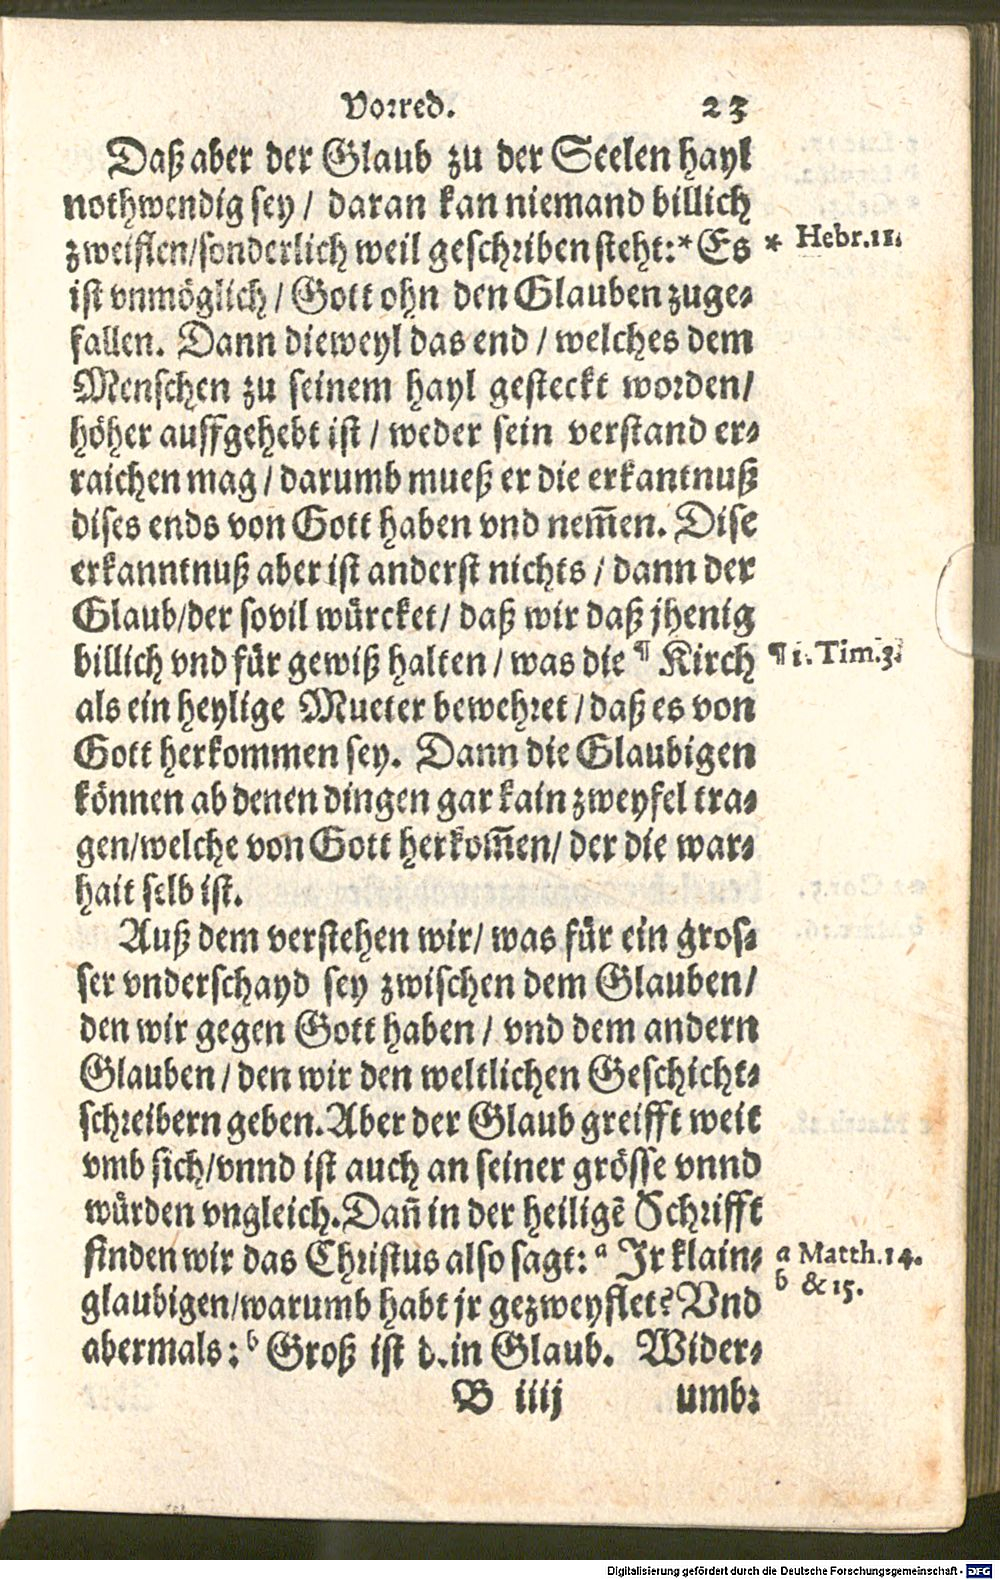 Vorred. 23
Daß aber der Glaub zu der Seelen hayl
nothwendig sey / daran kan niemand billich
zweiflen/sonderlich weil geschriben steht:*Es
* Hebr.11.
ist vnmöglich / Gott ohn den Glauben zuge-
fallen. Dann dieweyl das end / welches dem
Menschen zu seinem hayl gesteckt worden/
höher auffgehebt ist / weder sein verstand er-
raichen mag / darumb mueß er die erkantnuß
dises ends von Gott haben vnd nem̃en. Dise
erkanntnuß aber ist anderst nichts / dann der
Glaub/der sovil würcket/ daß wir daß jhenig
billich vnd für gewiß halten / was die ¶ Kirch
¶ 1. Tim.3.
als ein heylige Mueter bewehret / daß es von
Gott herkommen sey. Dann die Glaubigen
können ab denen dingen gar kain zweyfel tra-
gen/welche von Gott herkom̃en/ der die war-
hait selb ist.
Auß dem verstehen wir/ was für ein gros-
ser vnderschayd sey zwischen dem Glauben/
den wir gegen Gott haben / vnd dem andern
Glauben / den wir den weltlichen Geschicht-
schreibern geben. Aber der Glaub greifft weit
vmb sich/vnnd ist auch an seiner grösse vnnd
würden vngleich. Dañ in der heiligẽ Schrifft
finden wir das Christus also sagt: a Jr klain-
a Matth.14.
glaubigen/warumb habt jr gezweyflet? Vnd
b & 15.
abermals: b Groß ist d.in Glaub. Wider-
B iiij umb:
Digitalisierung gefördert durch die Deutsche Forschungsgemeinschaft - DFG